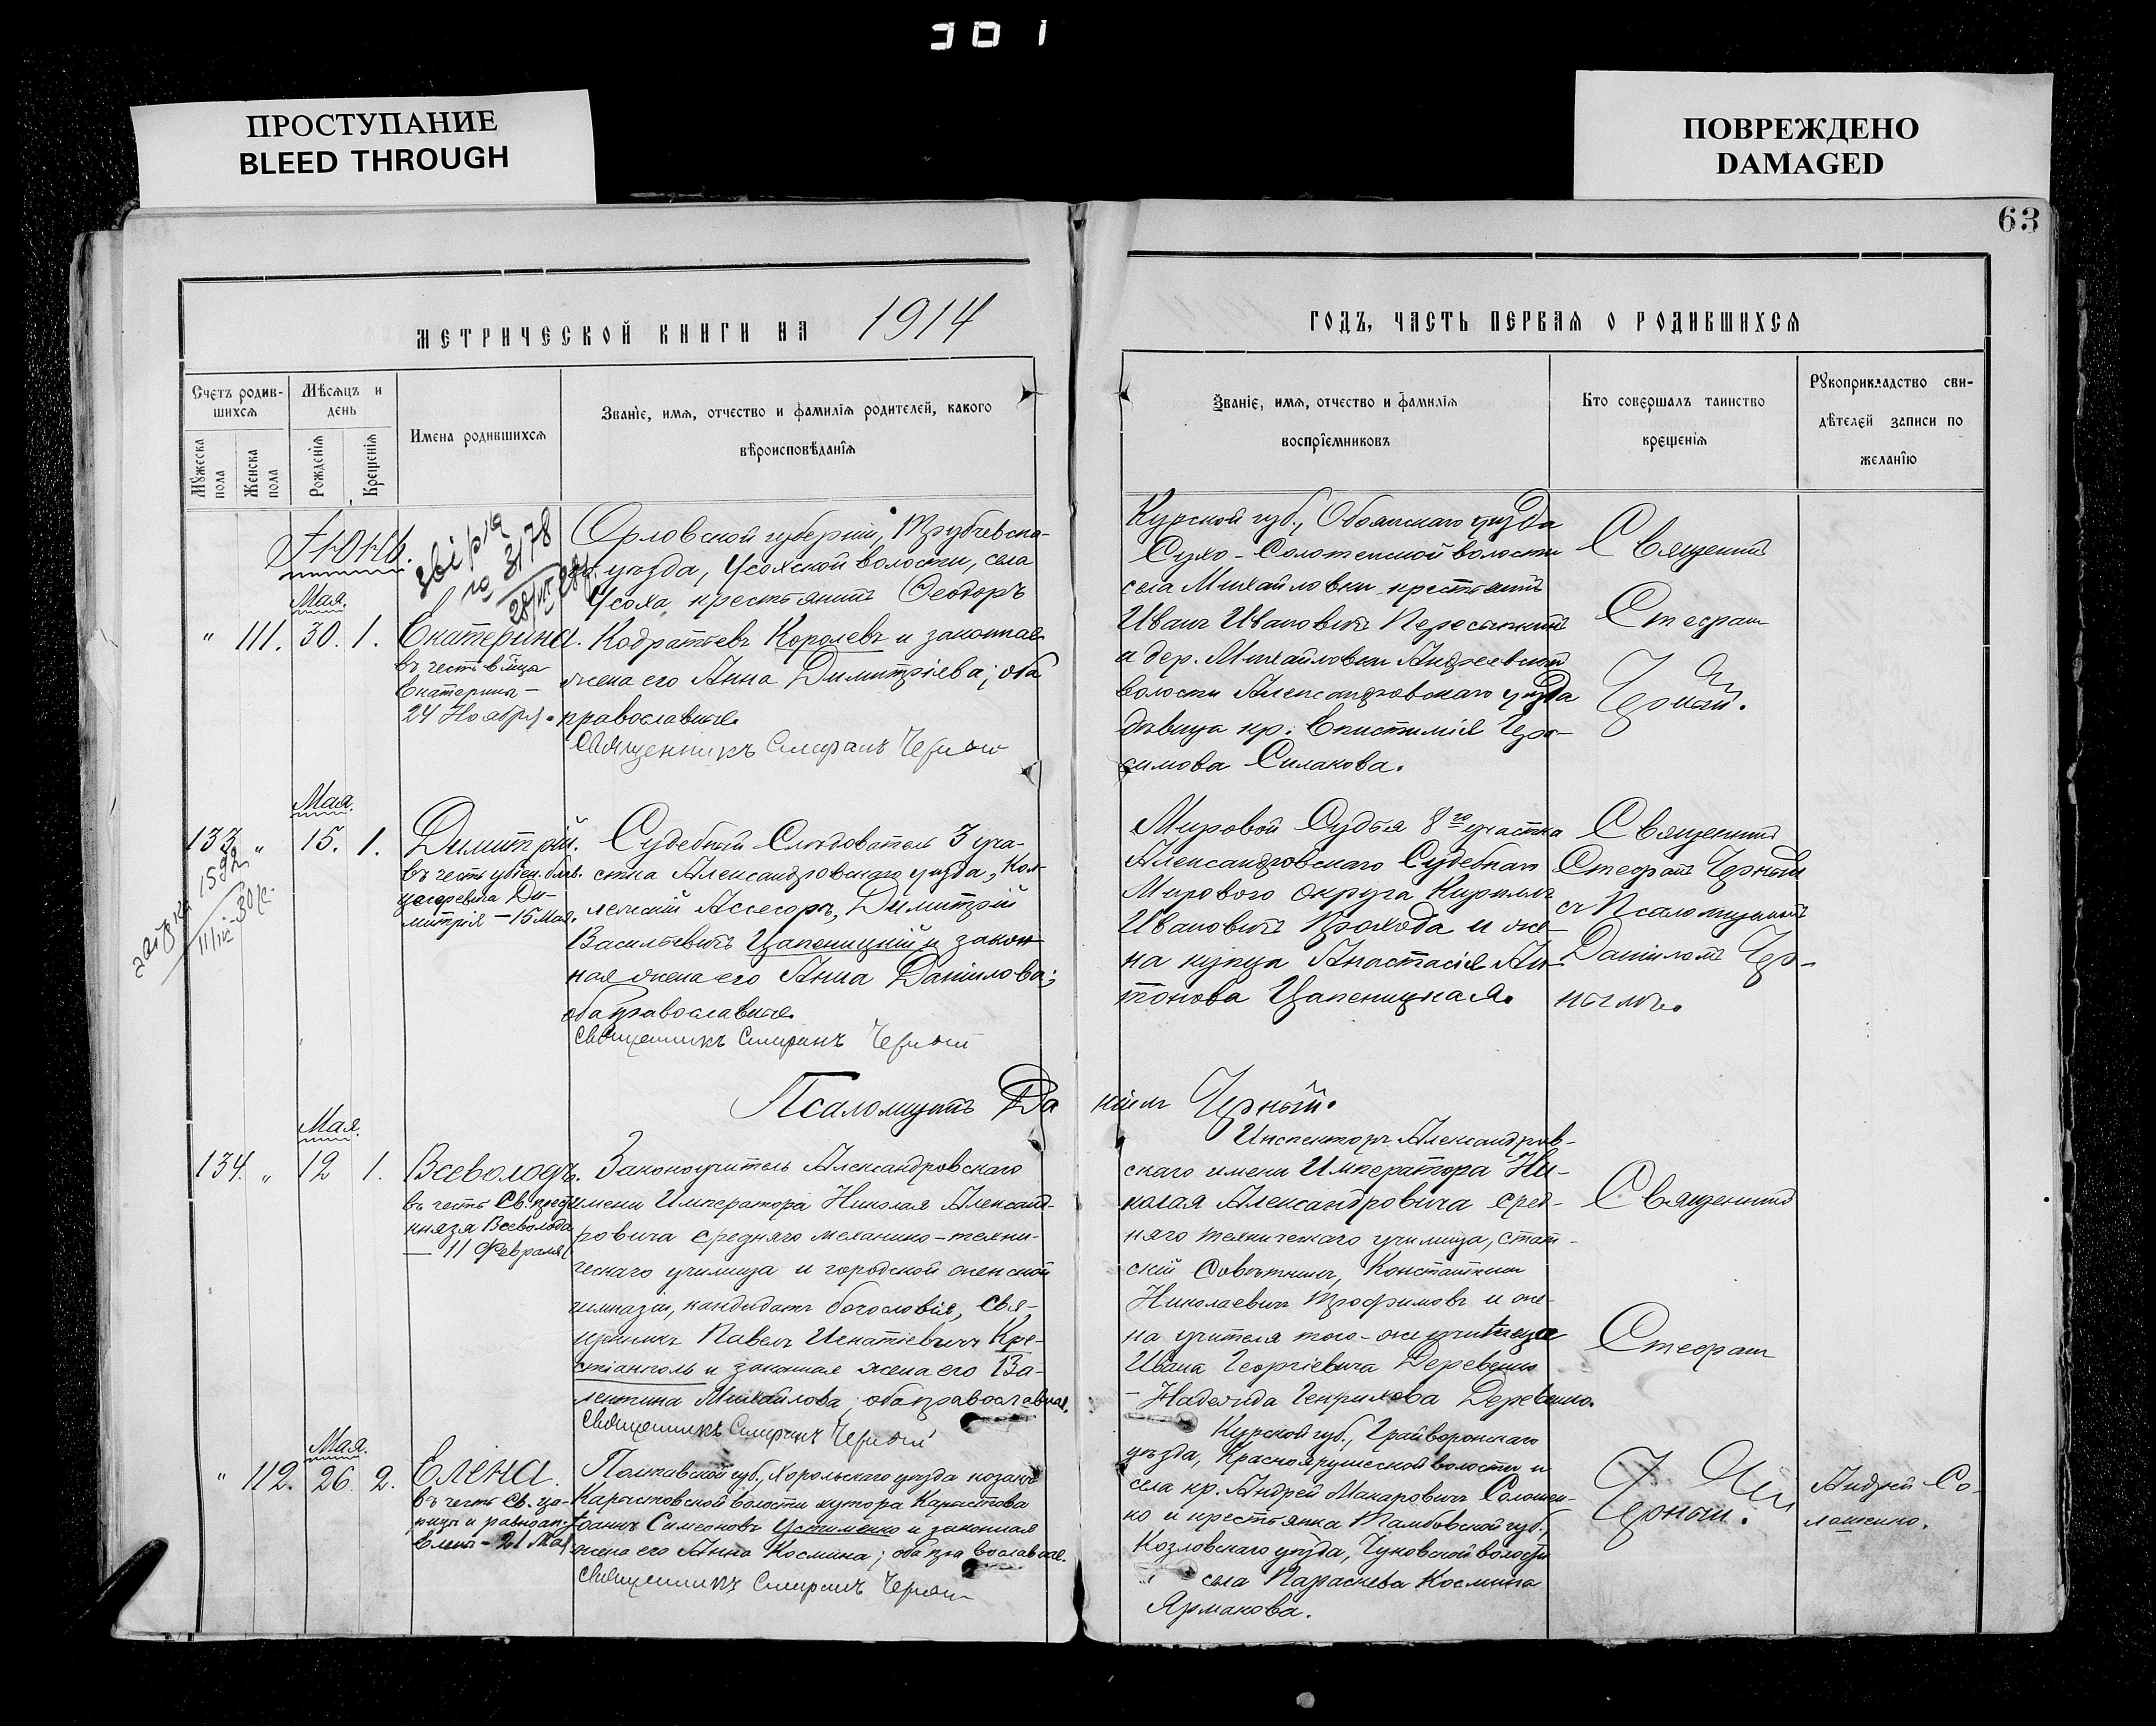 301
ПРОСТУПАНИЕ
BLEED THROUGH
ПОВРЕЖДЕНО
DAMAGED
63
МЕТРИЧЕСКОЙ КНИГИ НА 1914
ГОДЪ, ЧАСТЬ ПЕРВАЯ О РОДИВШИХСЯ
Счетъ родив-
шихся
Мѣсяцъ и
день
Мужеска
пола
Женска
пола
Рожденія
Крещенія
Имена родившихся
Званіе, имя, отчество и фамилія родителей, какого
вѣроисповѣданія
Званіе, имя, отчество и фамилія
воспріемниковъ
Кто совершалъ таинство
крещенія
Рукоприкладство сви-
дѣтелей записи по
желанію
Іюнь.
Мая.
" 111. 30. 1.
Екатерина.
въ честь в-мца
Екатерины —
24 Ноября.
Орловской губерніи, Трубчевска-
го уѣзда, Усохской волости, села
Усоха, крестьянинъ Ѳеодоръ
Кодратьевъ Королевъ и законная
жена его Анна Димитріева; оба
православные.
Священникъ Стефанъ Черный
Курской губ., Обоянскаго уѣзда
Сухо-Солотенской волости
села Михайловки крестьянинъ
Иванъ Ивановичъ Пересыпкинъ
и дер. Михайловки Андреевской
волости Александровскаго уѣзда
дѣвица кр. Епистимія Гера-
симова Силакова.
Священникъ
Стефанъ
Черный.
Мая.
133. " 15. 1.
Димитрій.
въ честь убіен. блгв.
царевича Ди-
митрія — 15 Мая.
Судебный Слѣдователь 3 уча-
стка Александровскаго уѣзда, Кол-
лежскій Ассесоръ, Димитрій
Васильевичъ Цапеницкій и закон-
ная жена его Анна Данілова;
оба православные.
Священникъ Стефанъ Черный
Мировой Судья 8го участка
Александровскаго Судебнаго
Мирового Округа Кириллъ
Ивановичъ Прохода и же-
на купца Анастасія Ан-
тонова Цапеницкая.
Священникъ
Стефанъ Черный
съ Псаломщикомъ
Даніиломъ Чер-
нымъ.
Псаломщикъ Даніилъ Черный.
Мая.
134. " 12 1.
Всеволодъ.
въ честь Св.
князя Всеволода
— 11 Февраля
Законоучитель Александровскаго
имени Императора Николая Александ-
ровича средняго механико-техни-
ческаго училища и городской женской
гимназіи, кандидатъ богословія, Свя-
щенникъ Павелъ Игнатіевичъ Кре-
стіанполь и законная жена его Ва-
лентина Михайлова; оба православные.
Священникъ Стефанъ Черный
Инспекторъ Александров-
скаго имени Императора Ни-
колая Александровича сред-
няго техническаго училища, стат-
скій Совѣтникъ, Константинъ
Николаевичъ Трофимовъ и же-
на учителя того-же училища
Ивана Георгіевича Деревенко
— Надежда Генрихова Деревенко.
Священникъ
Стефанъ
Черный.
Мая.
" 112. 26. 2.
Елена.
въ честь Св. ца-
рицы и равноап.
Елены — 21 Мая
Полтавской губ., Хорольскаго уѣзда козакъ
волости хутора
Іоаннъ Симеоновъ Устименко и законная
жена его Анна Космина; оба православные.
Священникъ Стефанъ Черный
Курской губ., Грайворонскаго
уѣзда, Краснояружеской волости и
села кр. Андрей Макаровичъ Соломен-
ко и крестьянка Тамбовской губ.,
Козловскаго уѣзда, волости
села Параскева Космина
Ярмакова.
Андрей Со-
ломенко.